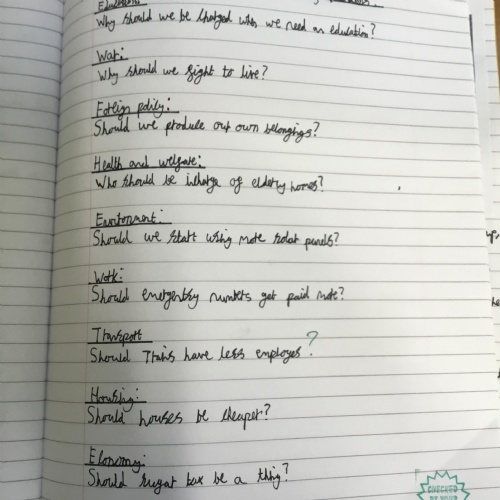 Education
Why should we be charged when we need an education?
War:
Why should we fight to live?
Foreign policy:
Should we produce our own belongings?
Health and welfare:
Who should be incharge of elderly homes?
Environment:
Should we start using more solar panels?
Work:
Should emergentsy numbers get paid more?
Transport
Should Trains have less employes?
Housing:
Should houses be cheaper?
Economy:
Should sugar tax be a thing?
CHECKED
BY YOUR